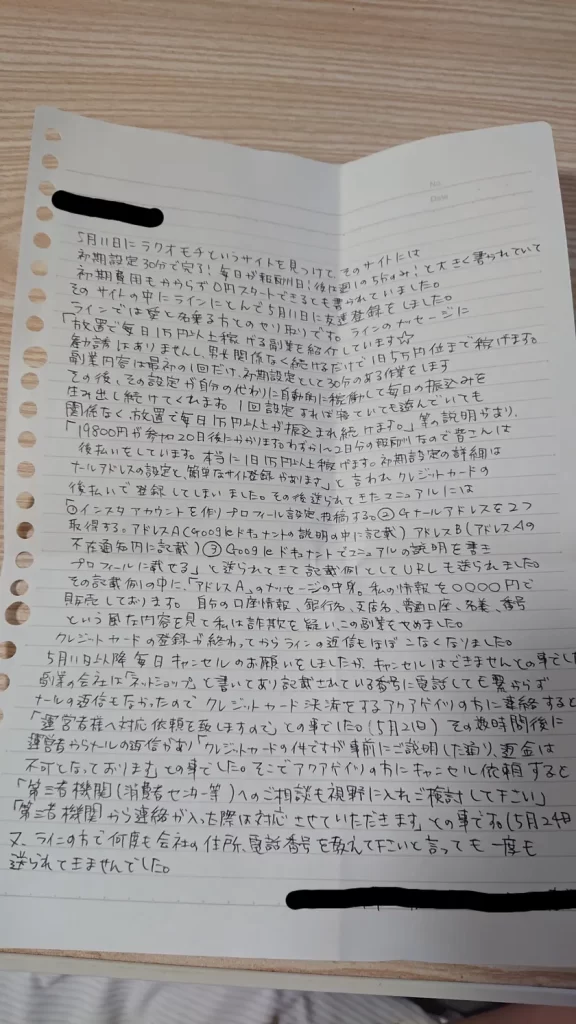 5月11日にラクオモチというサイトを見つけて、そのサイトには
初期設定30分で完了!毎日が粗利日!後は週1の5分のみ!と大きく書られていて
初期費用もかからず0円スタートできるとも書られていました。
そのサイトの中にラインにとんで5月11日に友達登録をしました。
ラインでは 愛と名乗る方とのやり取りです。ラインのメッセージに
「放置で毎日1万円以上稼げる副業を紹介しています☆
勧誘はありませんし、男女関係なく続けるだけで1日5万円位まで稼げます。
副業内容は最初の1回だけ、初期設定として30分のある作業をします
その後、その設定が自分の代わりに自動的に稼働して毎日の振込みを
生み出し続けてくれます。1回設定すれば寝ていても遊んでいても
関係なく、放置で毎日1万円以上が振込まれ続けます。」等の説明があり、
「19800円が参加20日後にかかります。わずか1〜2日分の粗利なので皆さんは
後払いをしています。本当に1日1万円以上稼げます。初期設定の詳細は
メールアドレスの設定と、簡単なサイト登録があります」と言われクレジットカードの
後払いで登録してしまいました。その後送られてきたマニュアルには
①インスタアカウントを作りプロフィール設定、投稿する。②Gメールアドレスを2つ
取得する。アドレスA(Googleドキュメントの説明の中に記載) アドレスB(アドレスAの
不在通知内に記載) ③Googleドキュメントでマニュアルの説明を書き
プロフィールに載せる」と送られてきて記載例としてURLも送られました。
その記載例の中に、「アドレスA」のメッセージの中身。私の情報を〇〇〇〇円で
販売しております。自分の口座情報、銀行名、支店名、普通口座、名義、番号
という風な内容を見て私は詐欺を疑い、この副業をやめました。
クレジットカードの登録が終わってからラインの返信もほぼこなくなりました。
5月11日以降 毎日キャンセルのお願いをしましたが、キャンセルはできませんとの事でした
副業の会社は「ネットショップ」と書いてあり記載されている番号に電話しても繋がらず
メールの返信もなかったので クレジットカード決済をするアクアゲイツの方に連絡すると
「運営者様へ対応依頼を致しますので」との事でした。(5月21日) その数時間後に
運営者からメールの返信があり「クレジットカードの件ですが事前にご説明した通り、返金は
不可となっております」との事でした。そこでアクアゲイツの方にキャンセル依頼すると
「第三者機関(消費者センター等)へのご相談も視野に入れご検討して下さい」
「第三者機関から連絡が入った際は対応させていただきます」との事です。(5月24日
又、ラインの方で何度も会社の住所、電話番号を教えて下さいと言っても一度も
送られてきませんでした。